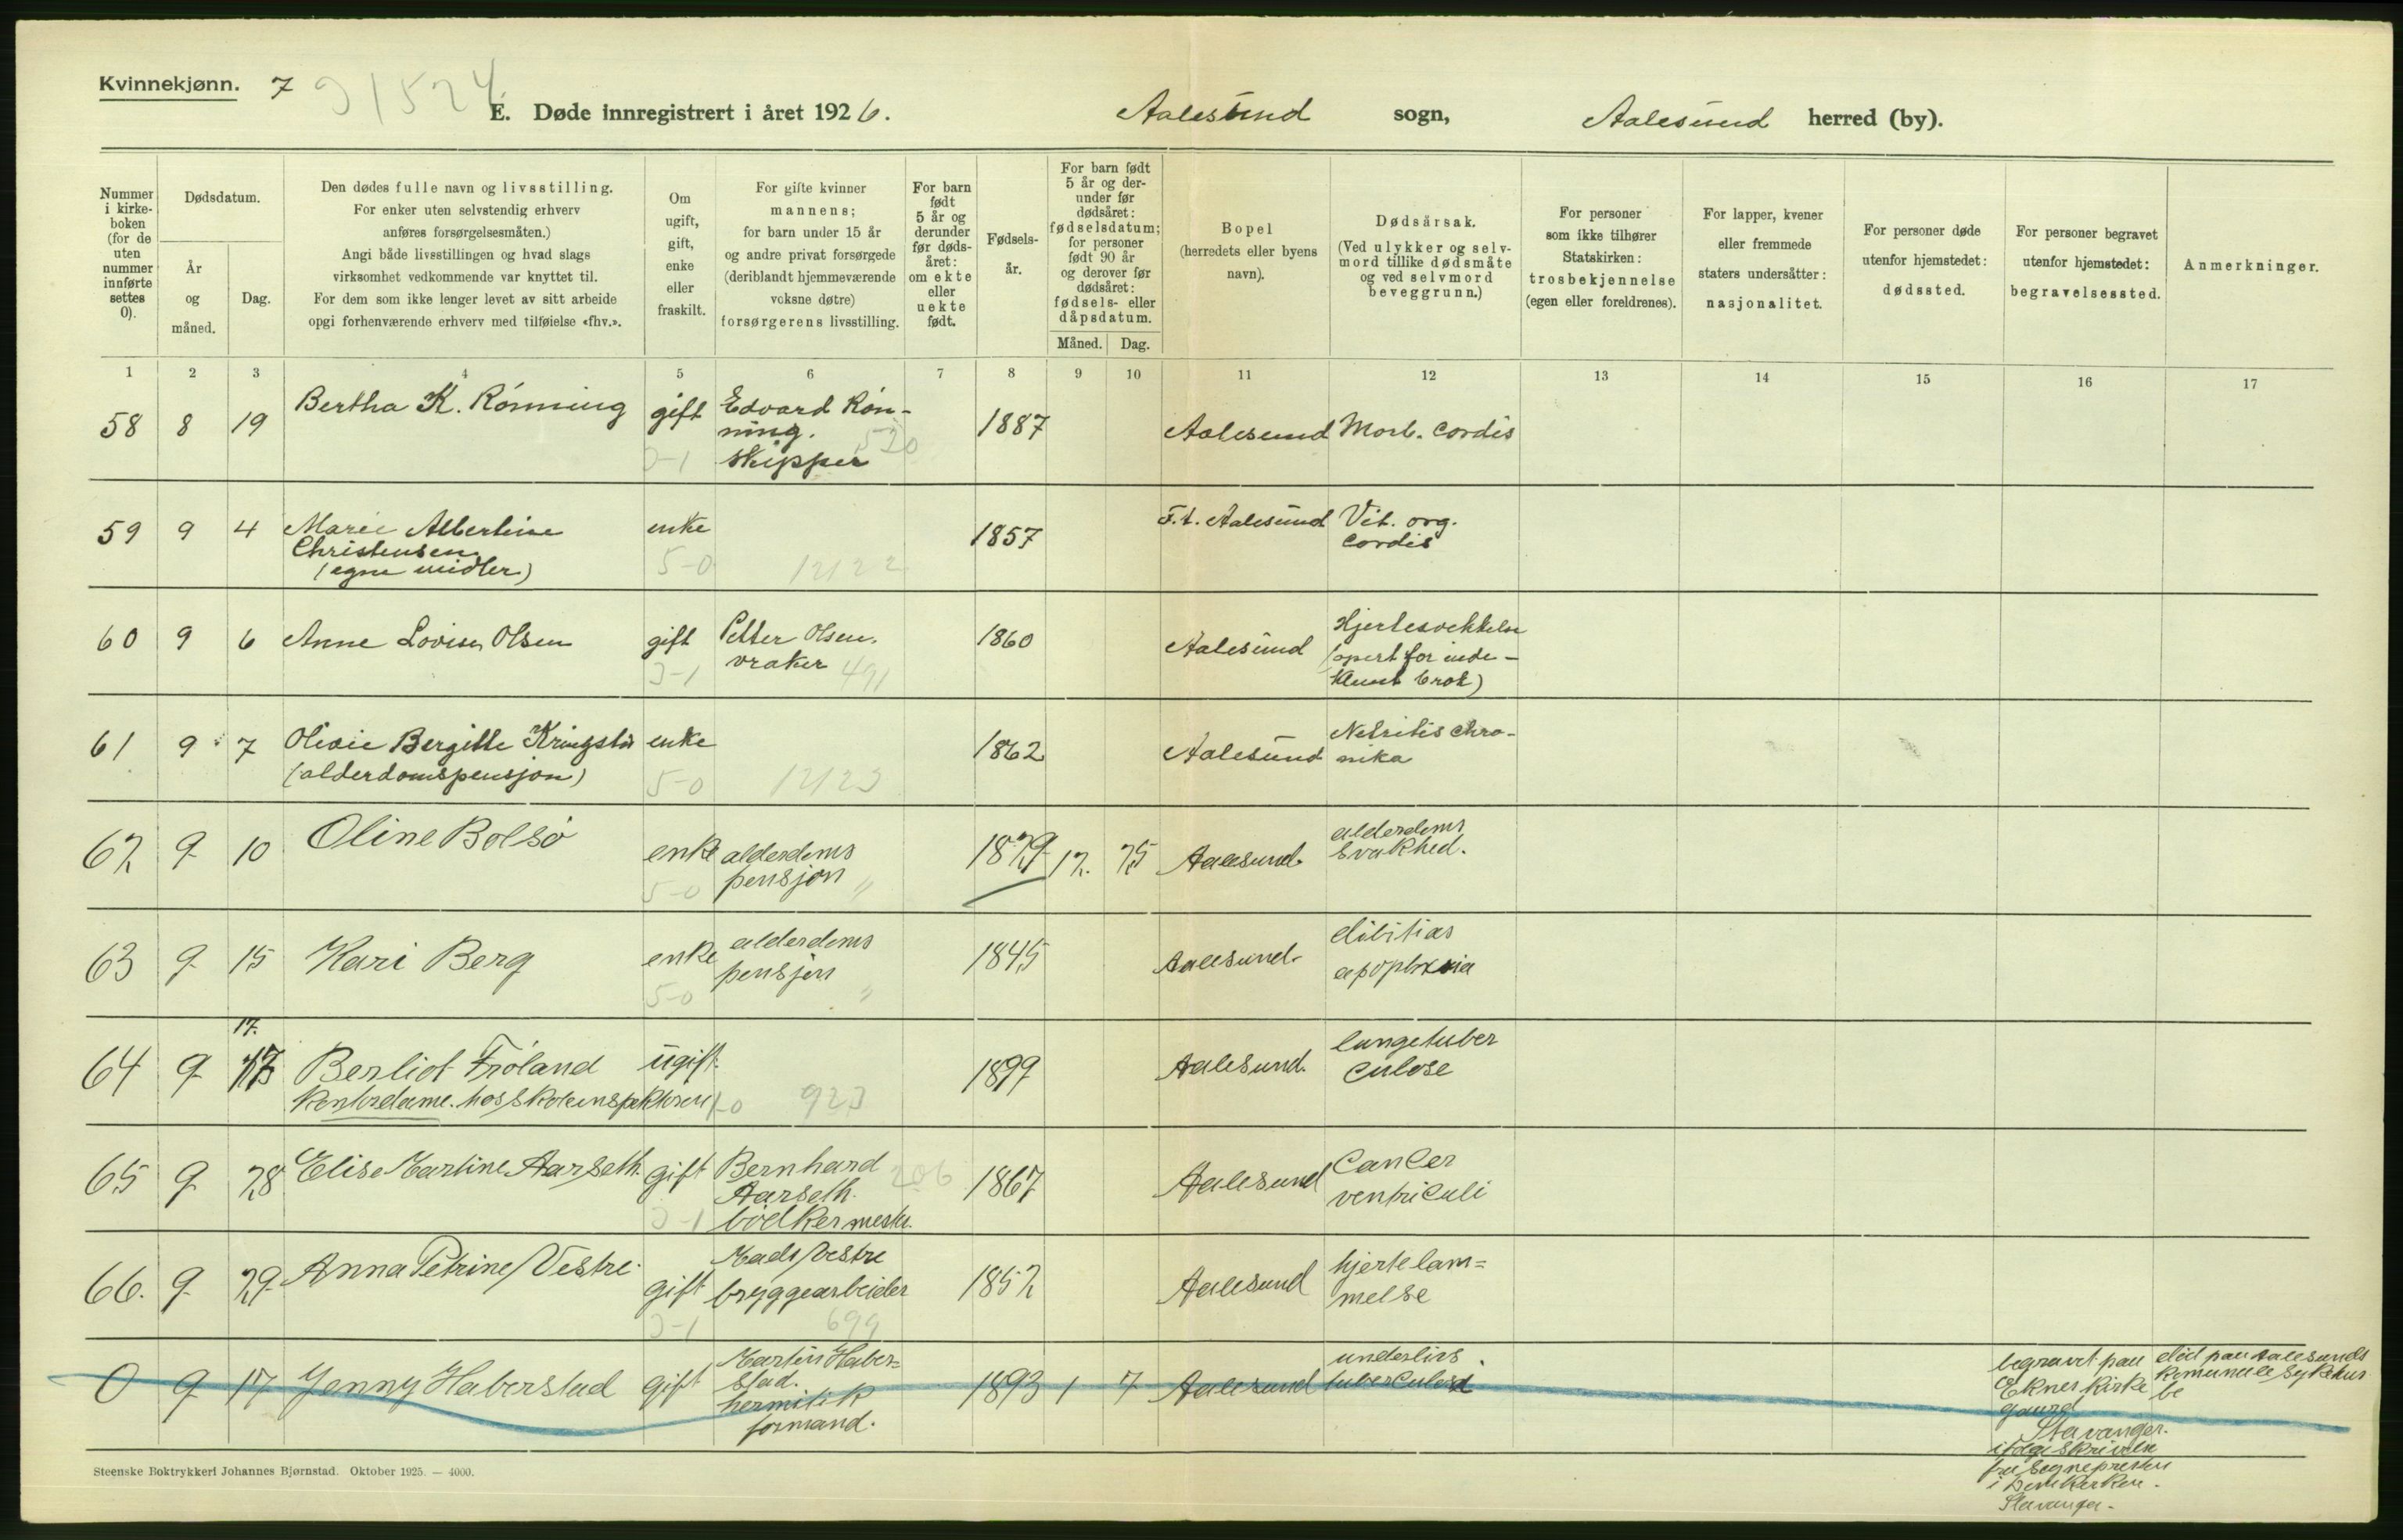 Kvinnekjønn. 7 31524
E. Døde innregistrert i året 1926. Aalesund sogn, Aalesund herred (by).
Nummer i kirkeboken (for de uten nummer innførte settes 0).
Dødsdatum.
År og måned.
Dag.
Den dødes fulle navn og livsstilling.
For enker uten selvstendig erhverv
anføres forsørgelsesmåten.)
Angi både livsstillingen og hvad slags
virksomhet vedkommende var knyttet til.
For dem som ikke lenger levet av sitt arbeide
opgi forhenværende erhverv med tilføielse «fhv.».
Om ugift, gift, enke eller fraskilt.
For gifte kvinner
mannens;
for barn under 15 år
og andre privat forsørgede
(deriblandt hjemmeværende
voksne døtre)
forsørgerens livsstilling.
For barn født 5 år og derunder før dødsåret: om ekte eller uekte født.
Fødselsår.
For barn født 5 år og derunder før dødsåret: fødselsdatum; for personer født 90 år og derover før dødsåret: fødsels- eller dåpsdatum.
Måned. Dag.
Bopel
(herredets eller byens
navn).
Dødsårsak.
(Ved ulykker og selvmord tillike dødsmåte
og ved selvmord
beveggrunn.)
For personer
som ikke tilhører
Statskirken:
trosbekjennelse
(egen eller foreldrenes).
For lapper, kvener
eller fremmede
staters undersåtter:
nasjonalitet.
For personer døde
utenfor hjemstedet:
dødssted.
For personer begravet
utenfor hjemstedet:
begravelsessted.
Anmerkninger.
1 2 3 4 5 6 7 8 9 10 11 12 13 14 15 16 17
58 8 19 Bertha K. Rónning gift Edvard Rón-
ning.
skipper 1887 Aalesund Morb. cordis
0-1 520
59 9 4 Marie Albertine
Christensen
(egne midler) enke 1857 F.t. Aalesund Vit. org.
cordis
5-0 12122
60 9 6 Anne Lovise Olsen gift Petter Olsen.
vraker 1860 Aalesund Hjertesvekkelse
(opert for inde-
klemt brok)
0-1 491
61 9 7 Olivie Bergitte Kringstad
(alderdomspensjon) enke 1862 Aalesund Nefritis chro-
nika
5-0 12123
62 9 10 Oline Bolsö enke alderdoms
pensjon 1829 12. 25 Aalesund alderdoms
svakhed.
5-0 "
63 9 15 Kari Berg enke alderdoms
pensjon 1845 Aalesund apoplexia
5-0 "
64 9 17. Berliot Fróland
Kontordame. hos skoleinspektoren ugift 1899 Aalesund. lungetuber
culose
923
65 9 28 Elise Martine Aarseth. gift Bernhard
Aarseth.
bödkermester. 1867 Aalesund Cancer
ventriculi
0-1 206
66. 9 29 Anna Petrine Vestre. gift Mads Vestre
bryggearbeider 1852 Aalesund hjertelam=
melse
0-1 699
0 9 17 Jenny Haberstad gift Martin Haber=
stad.
hermitik
formand. 1893 1 7 Aalesund underlivs
tuberculose
begravet paa
Eknes kirke
gaard
Stavanger.
ifölge skrivelse
fra sognepresten
i Domkirken.
Stavanger.
död paa Aalesunds
komunale sykehus
Steenske Boktrykkeri Johannes Bjørnstad. Oktober 1925. — 4000.